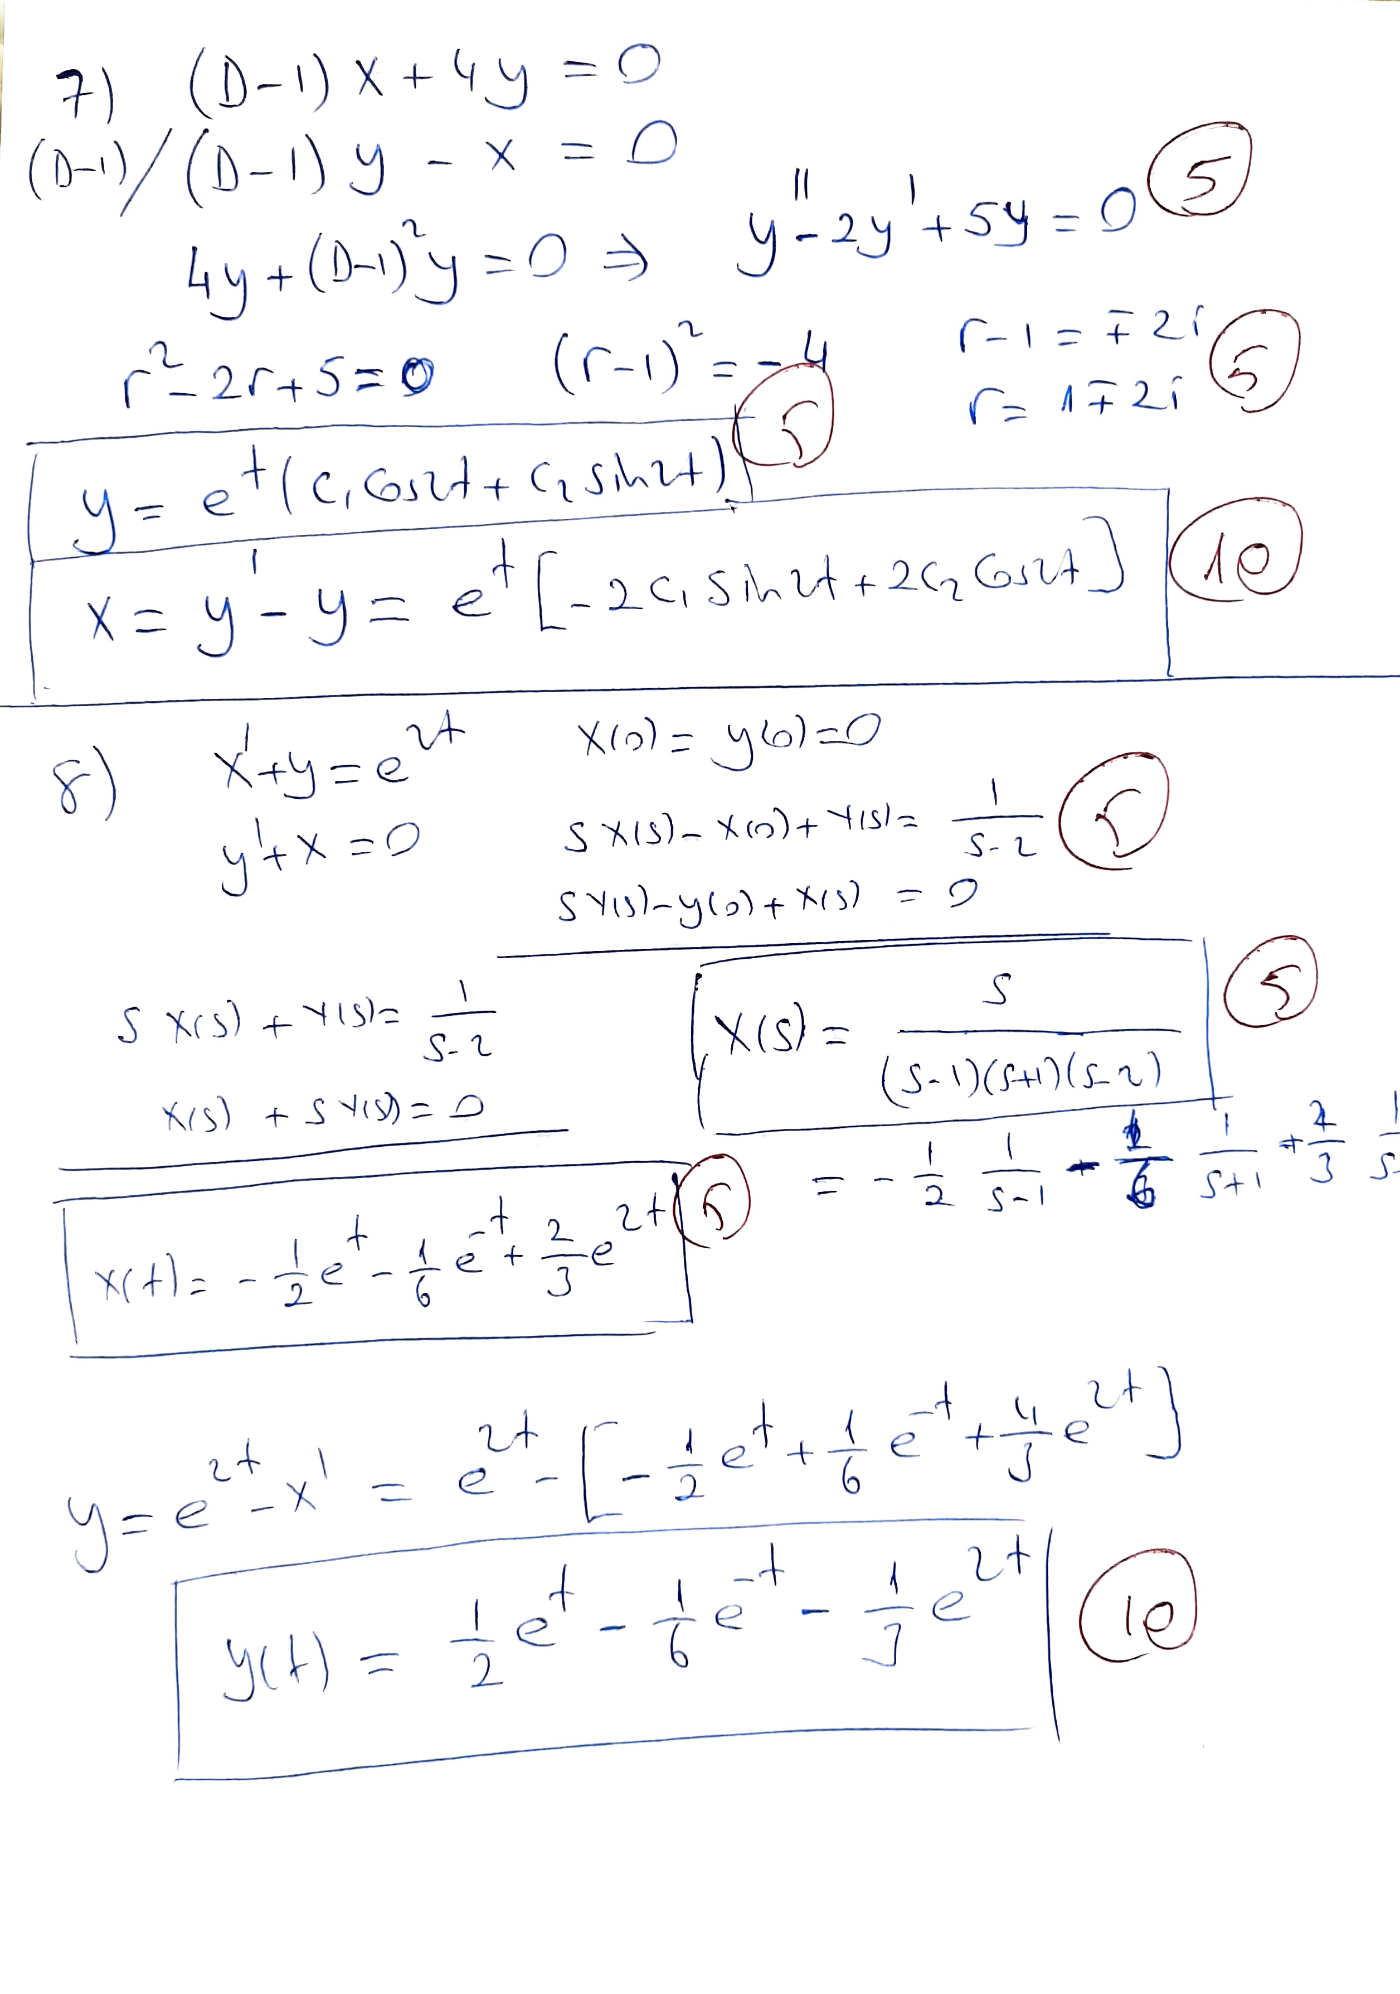 7) (D-1) x + 4y = 0
(D-1)/ (D-1) y - x = 0
4y + (D-1)²y = 0 ⇒ y'' - 2y' + 5y = 0 (5)
r² - 2r + 5 = 0 (r-1)² = -4 r-1 = ∓2i
r = 1∓2i (5)
y = e^t (c₁ cos2t + c₂ sin2t) (5)
x = y' - y = e^t [-2c₁ sin2t + 2c₂ cos2t] (10)
8) x' + y = e^{2t} x(0) = y(0) = 0
y' + x = 0 s X(s) - x(0) + Y(s) = 1/(s-2) (5)
s Y(s) - y(0) + X(s) = 0
s X(s) + Y(s) = 1/(s-2) X(s) = s/((s-1)(s+1)(s-2)) (5)
X(s) + s Y(s) = 0
= - 1/2 1/(s-1) - 1/6 1/(s+1) + 2/3
x(t) = - 1/2 e^t - 1/6 e^{-t} + 2/3 e^{2t} (5)
y = e^{2t} - x' = e^{2t} - [- 1/2 e^t + 1/6 e^{-t} + 4/3 e^{2t}]
y(t) = 1/2 e^t - 1/6 e^{-t} - 1/3 e^{2t} (10)